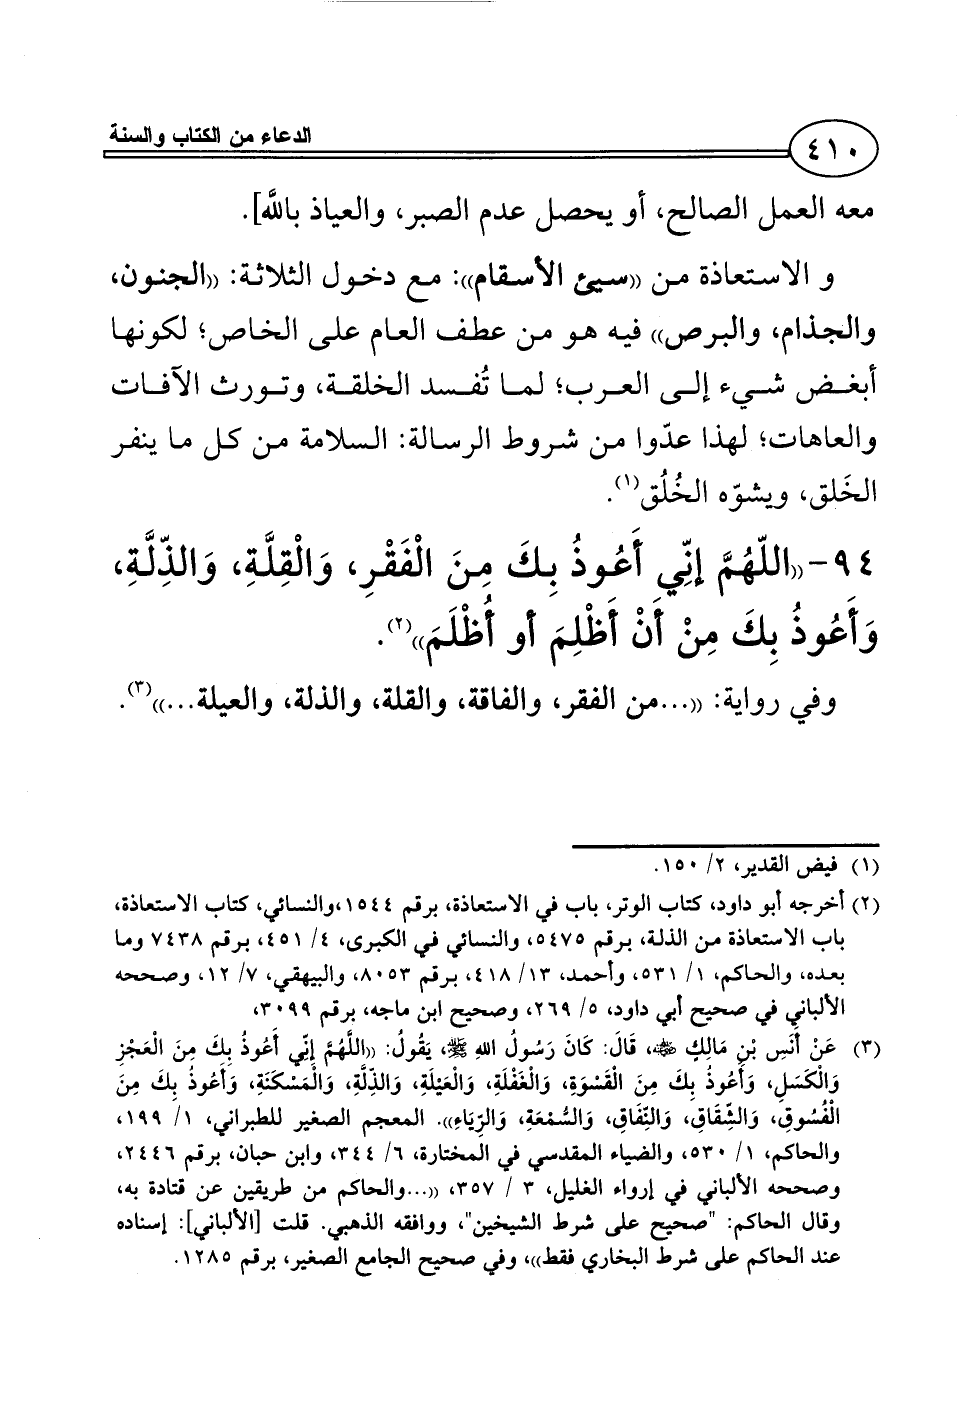 الدعاء من الكتاب والسنة
٤١٠
معه العمل الصالح، أو يحصل عدم الصبر، والعياذ بالله].
و الاستعاذة من ((سيئ الأسقام)): مع دخول الثلاثة: ((الجنون،
والجذام، والبرص)) فيه هو من عطف العام على الخاص؛ لكونها
أبغض شيء إلى العرب؛ لما تُفسد الخلقة، وتورث الآفات
والعاهات؛ لهذا عدّوا من شروط الرسالة: السلامة من كل ما ينفر
الخَلق، ويشوّه الخُلُق(١).
٩٤-((اللَّهُمَّ إِنِّي أَعُوذُ بِكَ مِنَ الْفَقْرِ، وَالْقِلَّةِ، وَالذِّلَّةِ،
وَأَعُوذُ بِكَ مِنْ أَنْ أَظْلِمَ أو أُظْلَمَ))(٢).
وفي رواية: ((...من الفقر، والفاقة، والقلة، والذلة، والعيلة...))(٣).
(١) فيض القدير، ٢/ ١٥٠.
(٢) أخرجه أبو داود، كتاب الوتر، باب في الاستعاذة، برقم ١٥٤٤،والنسائي، كتاب الاستعاذة،
باب الاستعاذة من الذلة، برقم ٥٤٧٥، والنسائي في الكبرى، ٤/ ٤٥١، برقم ٧٤٣٨ وما
بعده، والحاكم، ١/ ٥٣١، وأحمد، ١٣/ ٤١٨، برقم ٨٠٥٣، والبيهقي، ٧/ ١٢، وصححه
الألباني في صحيح أبي داود، ٥/ ٢٦٩، وصحيح ابن ماجه، برقم ٣٠٩٩،
(٣) عَنْ أَنَسِ بْنِ مَالِكٍ ﵁، قَالَ: كَانَ رَسُولُ اللهِ ﷺ، يَقُولُ: ((اللَّهُمَّ إِنِّي أَعُوذُ بِكَ مِنَ الْعَجْزِ
وَالْكَسَلِ، وَأَعُوذُ بِكَ مِنَ الْقَسْوَةِ، وَالْغَفْلَةِ، وَالْعَيْلَةِ، وَالذِّلَّةِ، وَالْمَسْكَنَةِ، وَأَعُوذُ بِكَ مِنَ
الْفُسُوقِ، وَالشِّقَاقِ، وَالنِّفَاقِ، وَالسُّمْعَةِ، وَالرِّيَاءِ)). المعجم الصغير للطبراني، ١/ ١٩٩،
والحاكم، ١/ ٥٣٠، والضياء المقدسي في المختارة، ٦/ ٣٤٤، وابن حبان، برقم ٢٤٤٦،
وصححه الألباني في إرواء الغليل، ٣ / ٣٥٧، ((...والحاكم من طريقين عن قتادة به،
وقال الحاكم: "صحيح على شرط الشيخين"، ووافقه الذهبي. قلت [الألباني]: إسناده
عند الحاكم على شرط البخاري فقط))، وفي صحيح الجامع الصغير، برقم ١٢٨٥.